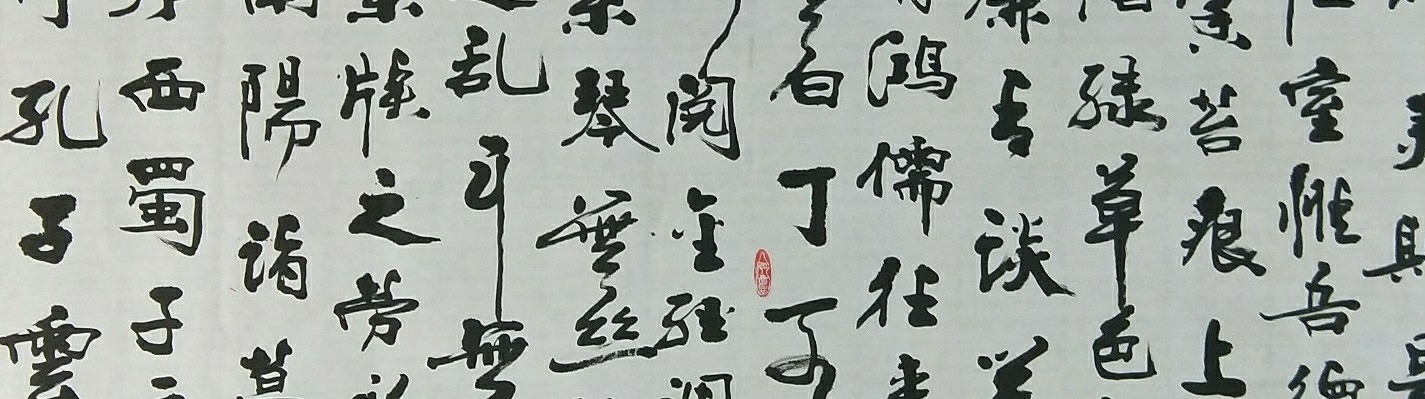 室惟吾德
苔痕上
階綠草色
簾青談笑
有鴻儒往來
白丁可
閱金經調
素琴無絲
乱耳無
案牘之勞形
南陽諸葛
西蜀子雲
孔子雲